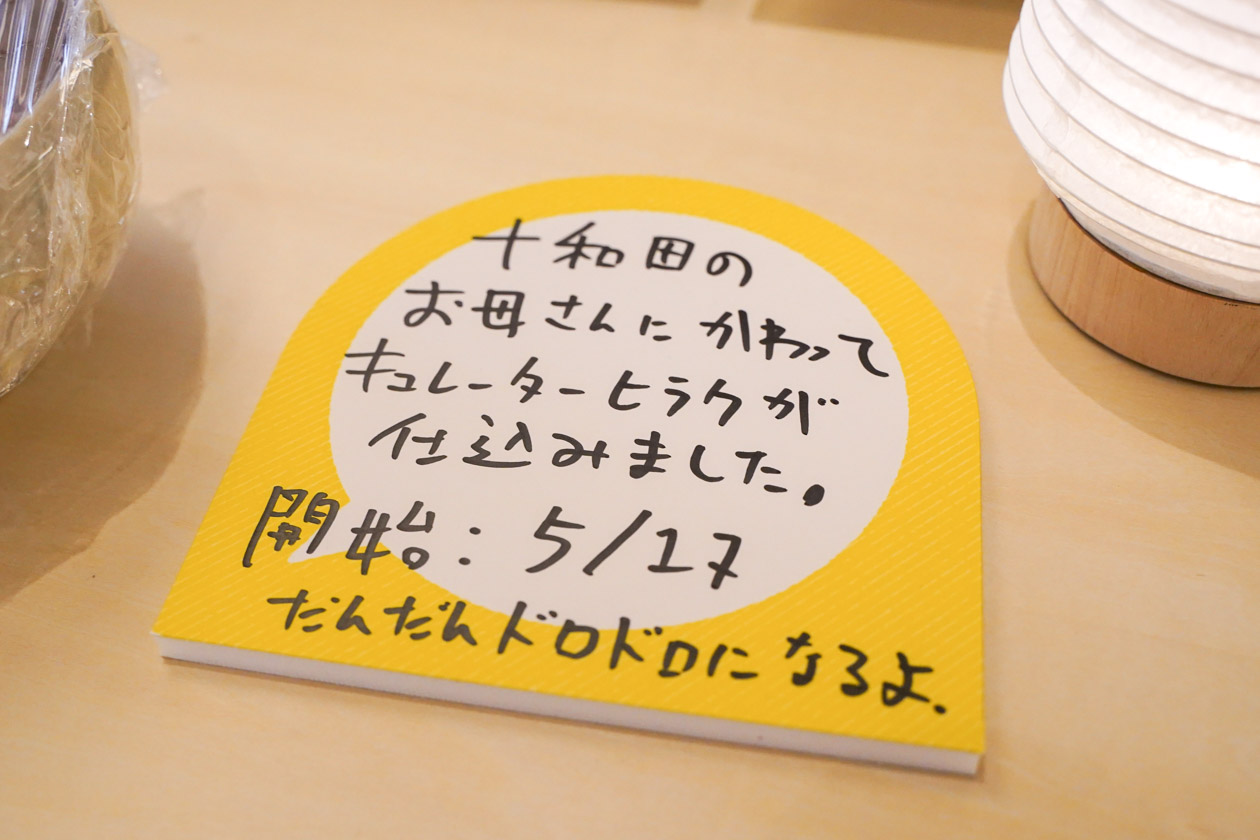 十和田の
お母さんにかわって
キュレーターヒラクが
仕込みました。
開始：5/17
だんだんドロドロになるよ.